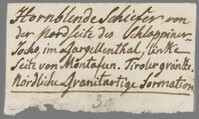 Hornblende Schiefer von
der nordseite des Schlappiner
Jochs, im Gargellenthal, linke
Seite von Montafun. Tiroler grenze.
Nördliche Granitartige Formation
39